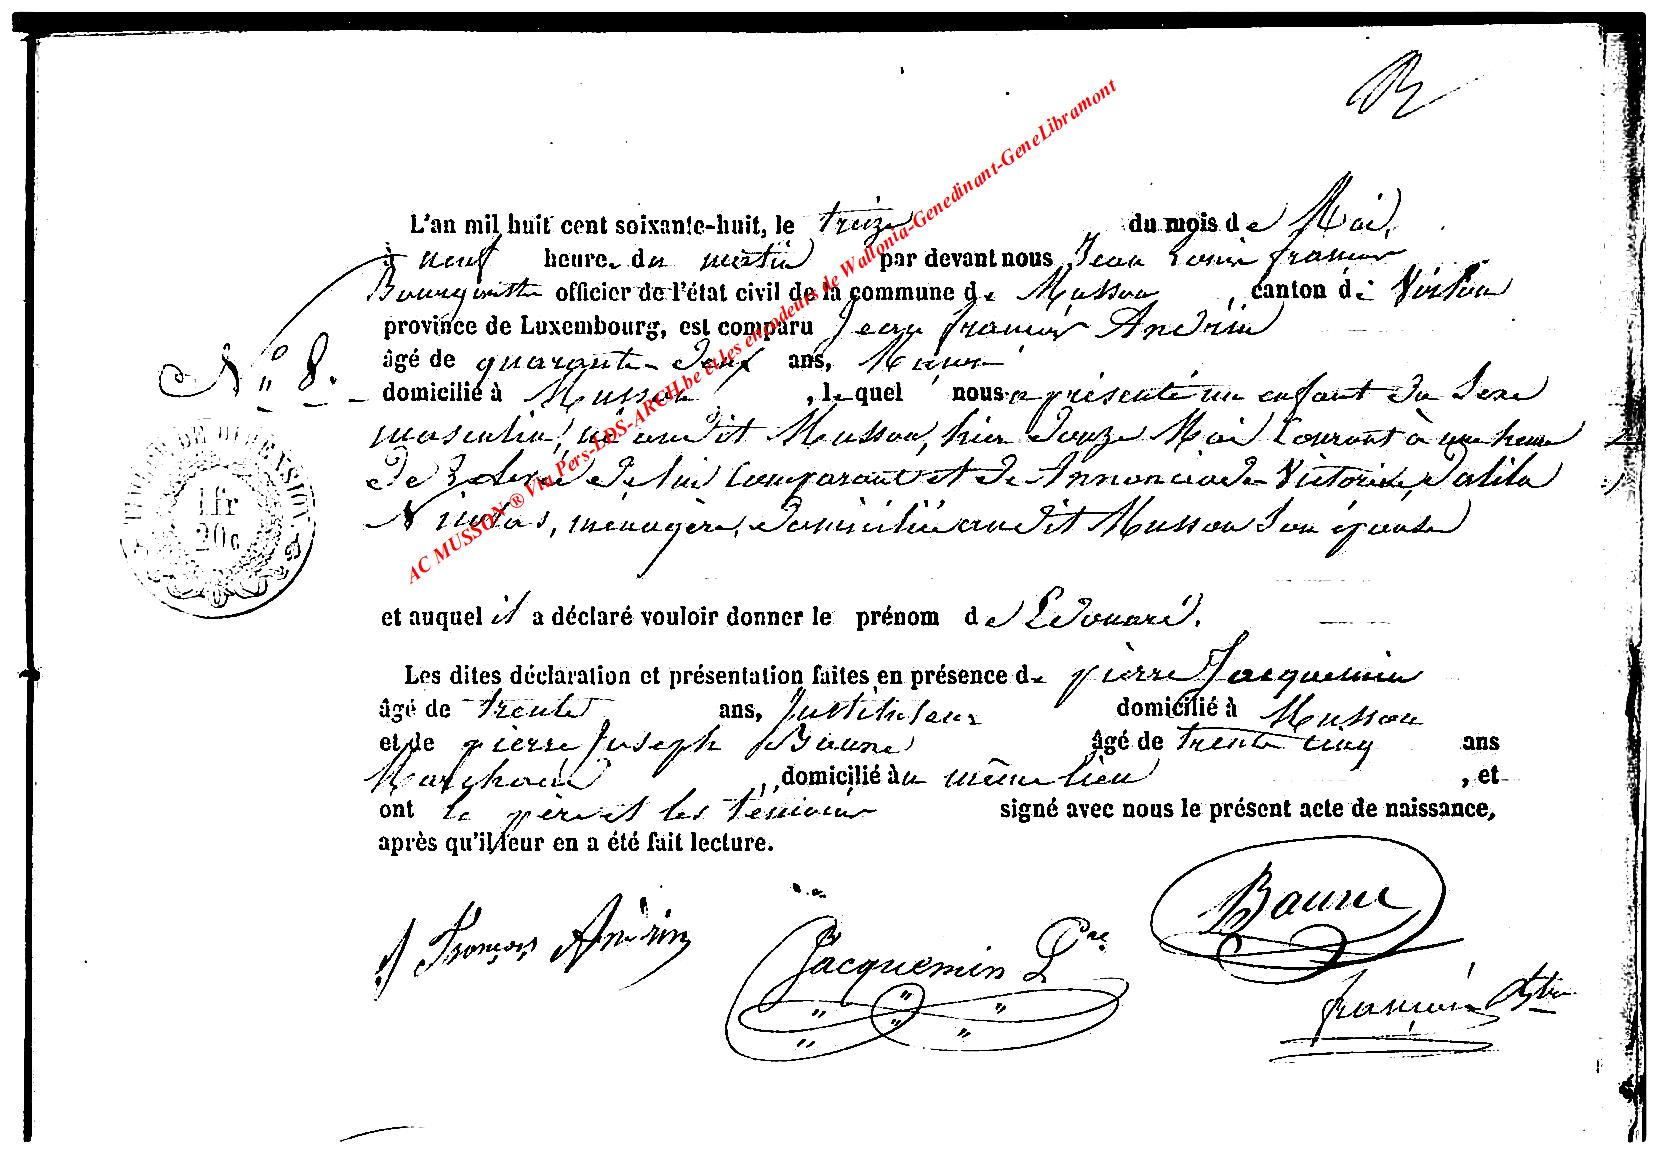 L'an mil huit cent soixante-huit, le treize du mois de Mai,
à neuf heure du matin par devant nous Jean Louis françois
Bourguette officier de l'état civil de la commune de Musson, canton de Virton
province de Luxembourg, est comparu Jean françois Andrin
âgé de quarante-deux ans,
N° 8.
domicilié à Musson, lequel nous a présenté un enfant du Sexe
masculin, né audit Musson, hier douze Mai Courant à une heure
de de lui Comparant et de Annonciade Victoire, Dalila
Nicolas, ménagère, domiciliée audit Musson Son épouse
TIMBRE DE DIMENSION
1 fr
20 c
et auquel il a déclaré vouloir donner le prénom de Edouard.
Les dites déclaration et présentation faites en présence de pierre Jacquemin
âgé de trente ans, Instituteur domicilié à Musson
et de pierre Joseph Baune âgé de trente cinq ans
Marchand, domicilié au même lieu, et
ont le père et les témoins signé avec nous le présent acte de naissance,
après qu'il leur en a été fait lecture.
J François Andrin
Jacquemin Pre
Baune
françois
AC MUSSON ® Via Pers-LDS-ARCH.be et les encodeurs de Wallonia-Genedinant-GeneLibramont